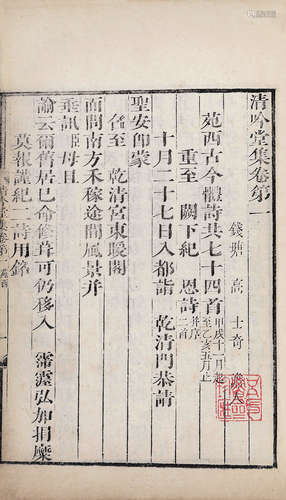 清吟堂集卷第一
錢塘 高士奇 澹人
苑西古今懷詩共七十四首 甲戌十一月起至乙亥五月止
重至 闕下紀 恩詩 二首 并序
十月二十七日入都詣 乾清門恭請
聖安即蒙
召至 乾清宮東暖閣
面問南方禾稼途間風景并
垂訊 母且
諭云爾舊居已命修葺可仍移入 霈澤弘加捐糜
莫報謹紀二詩用銘